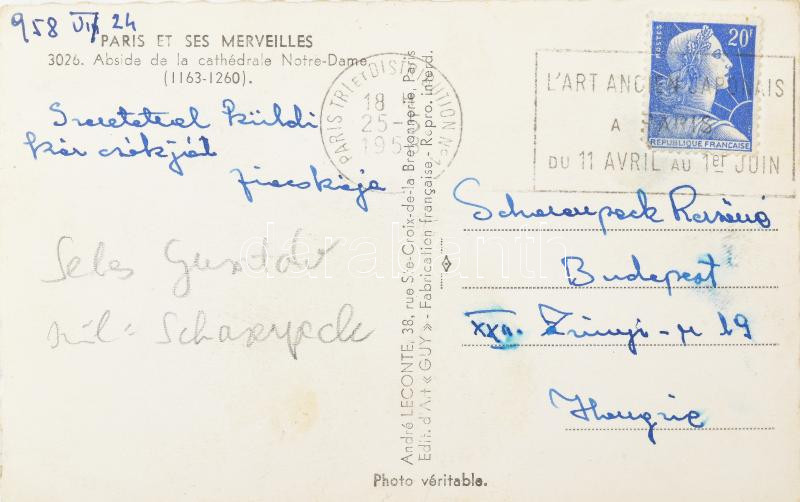 958 VII 24
PARIS ET SES MERVEILLES
3026. Abside de la cathédrale Notre-Dame
(1163-1260).
Szeretettel küldi
kézcsókját
Sebes Gusztáv
szül. Scharenpeck
André LECONTE, 38, rue Ste-Croix-de-la Bretonnerie, Paris
Edit. d'Art « GUY » - Fabrication française - Repro. interd.
PARIS TRI ET DISTRIBUTION Nº
18
25-
195
POSTES
20F
REPUBLIQUE FRANÇAISE
L'ART ANCIEN JAPONAIS
A PARIS
DU 11 AVRIL AU 1er JUIN
Scharenpeck
Budapest
XXII. Zrinyi-u 19
Hongrie
Photo véritable.
darabanth